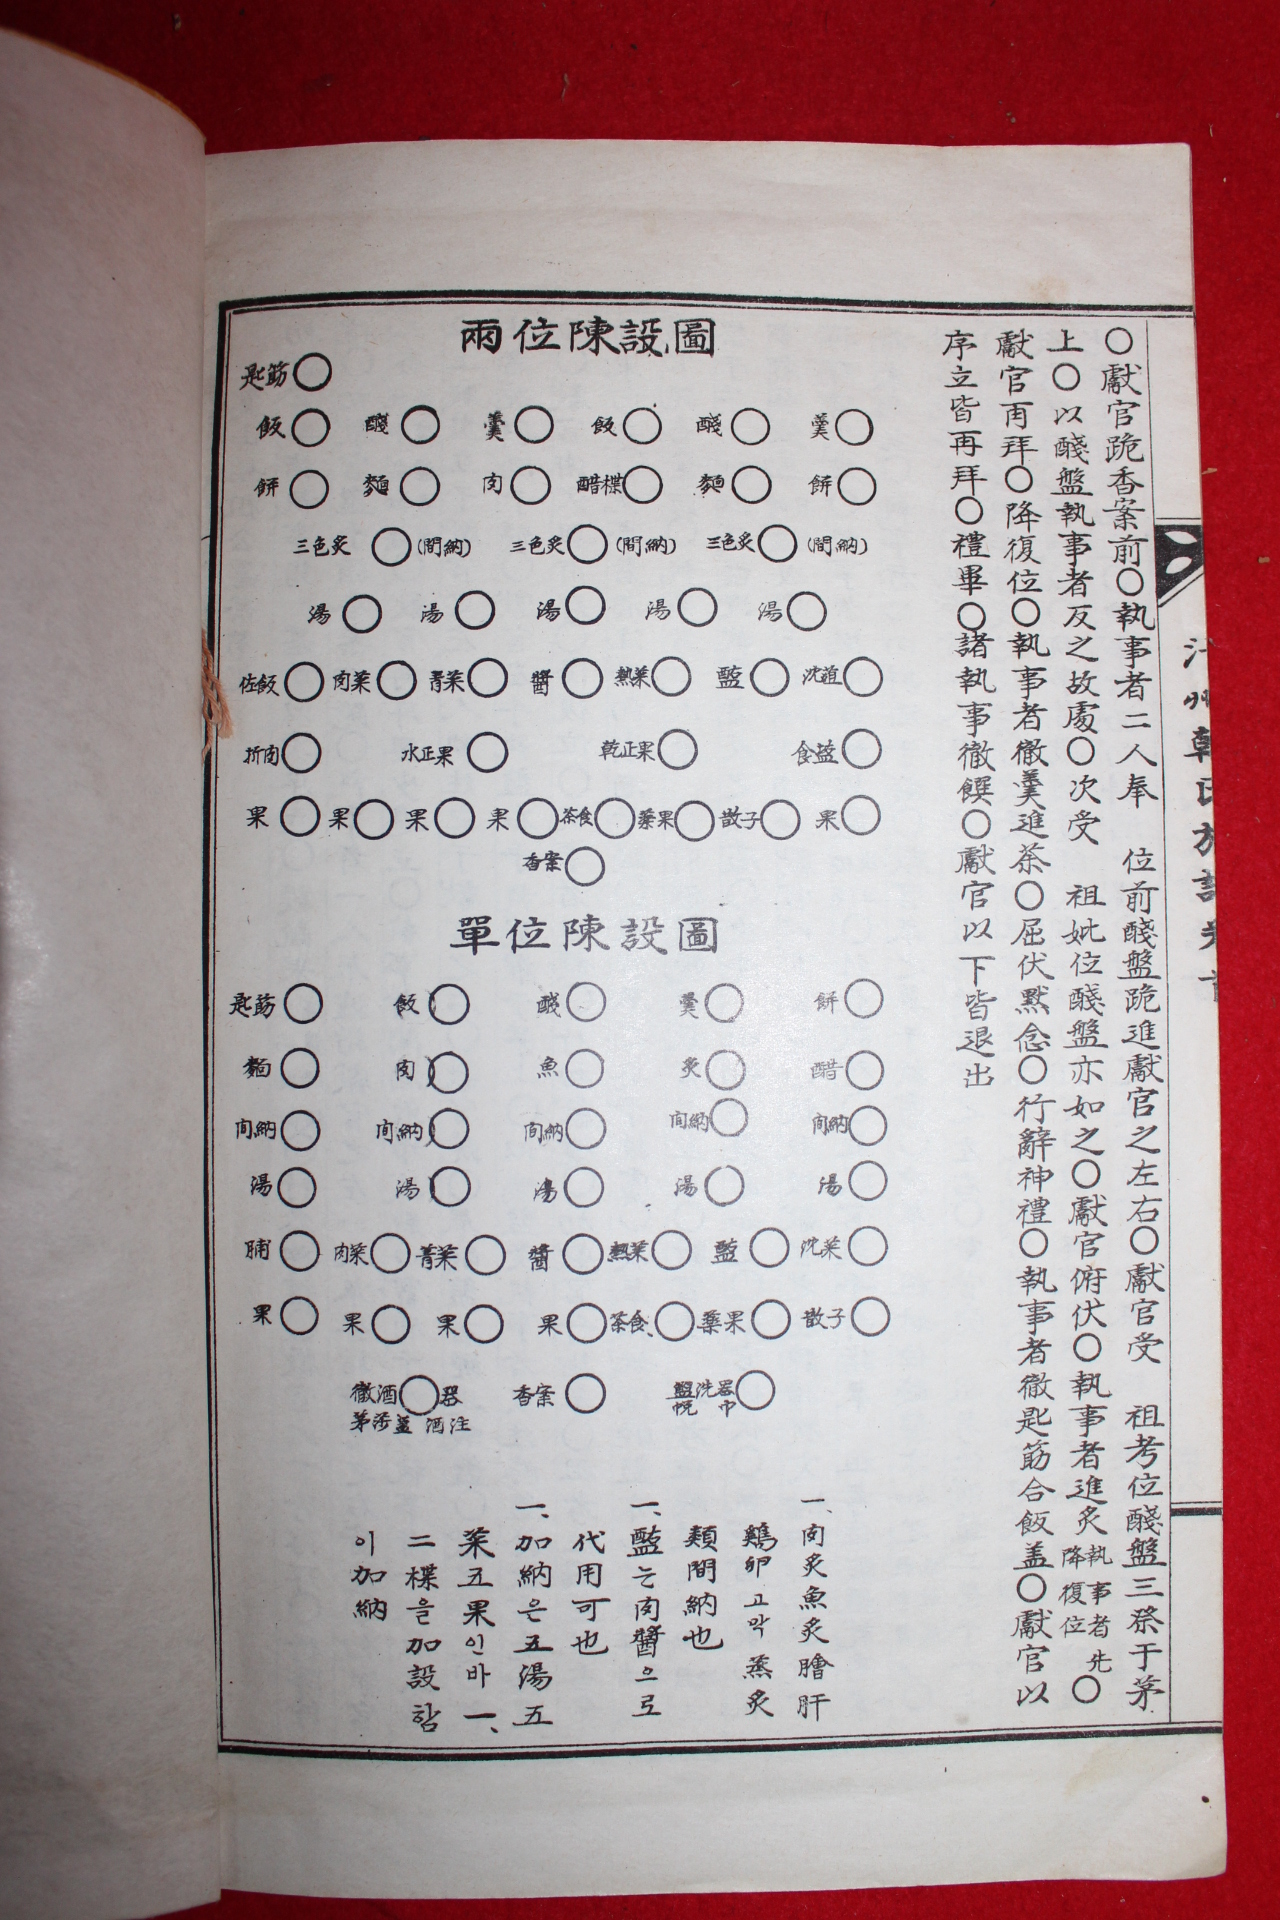 ○獻官跪香案前○執事者二人奉 位前醆盤跪進獻官之左右○獻官受 祖考位醆盤三祭于茅
上○以醆盤執事者反之故處○次受 祖妣位醆盤亦如之○獻官俯伏○執事者進炙執事者先降復位○
獻官再拜○降復位○執事者徹羹進茶○屈伏黙念○行辭神禮○執事者徹匙筯合飯盖○獻官以
序立皆再拜○禮畢○諸執事徹饌○獻官以下皆退出
兩位陳設圖
匙筯○
飯○ 醆○ 羹○ 飯○ 醆○ 羹○
餠○ 麵○ 肉○ 醋楪○ 麵○ 餠○
三色炙○(間納) 三色炙○(間納) 三色炙○(間納)
湯○ 湯○ 湯○ 湯○ 湯○
佐飯○ 肉菜○ 靑菜○ 醬○ 熟菜○ 醢○ 沈菹○
折肉○ 水正果○ 乾正果○ 食醢○
果○ 果○ 果○ 果○ 茶食○ 藥果○ 散子○ 果○
香案○
單位陳設圖
匙筯○ 飯○ 醆○ 羹○ 餠○
麵○ 肉○ 魚○ 炙○ 醋○
間納○ 間納○ 間納○ 間納○ 間納○
湯○ 湯○ 湯○ 湯○ 湯○
脯○ 肉菜○ 菁菜○ 醬○ 熟菜○ 醢○ 沈菜○
果○ 果○ 果○ 果○ 茶食○ 藥果○ 散子○
徹酒○器 香案○ 盥洗器○
茅沙盖 酒注 帨巾
一、肉炙魚炙膾肝
鷄卵고막蒸炙
類間納也
一、醢는肉醬으로
代用可也
一、加納은五湯五
菜五果인바一、
二楪을加設함
이加納